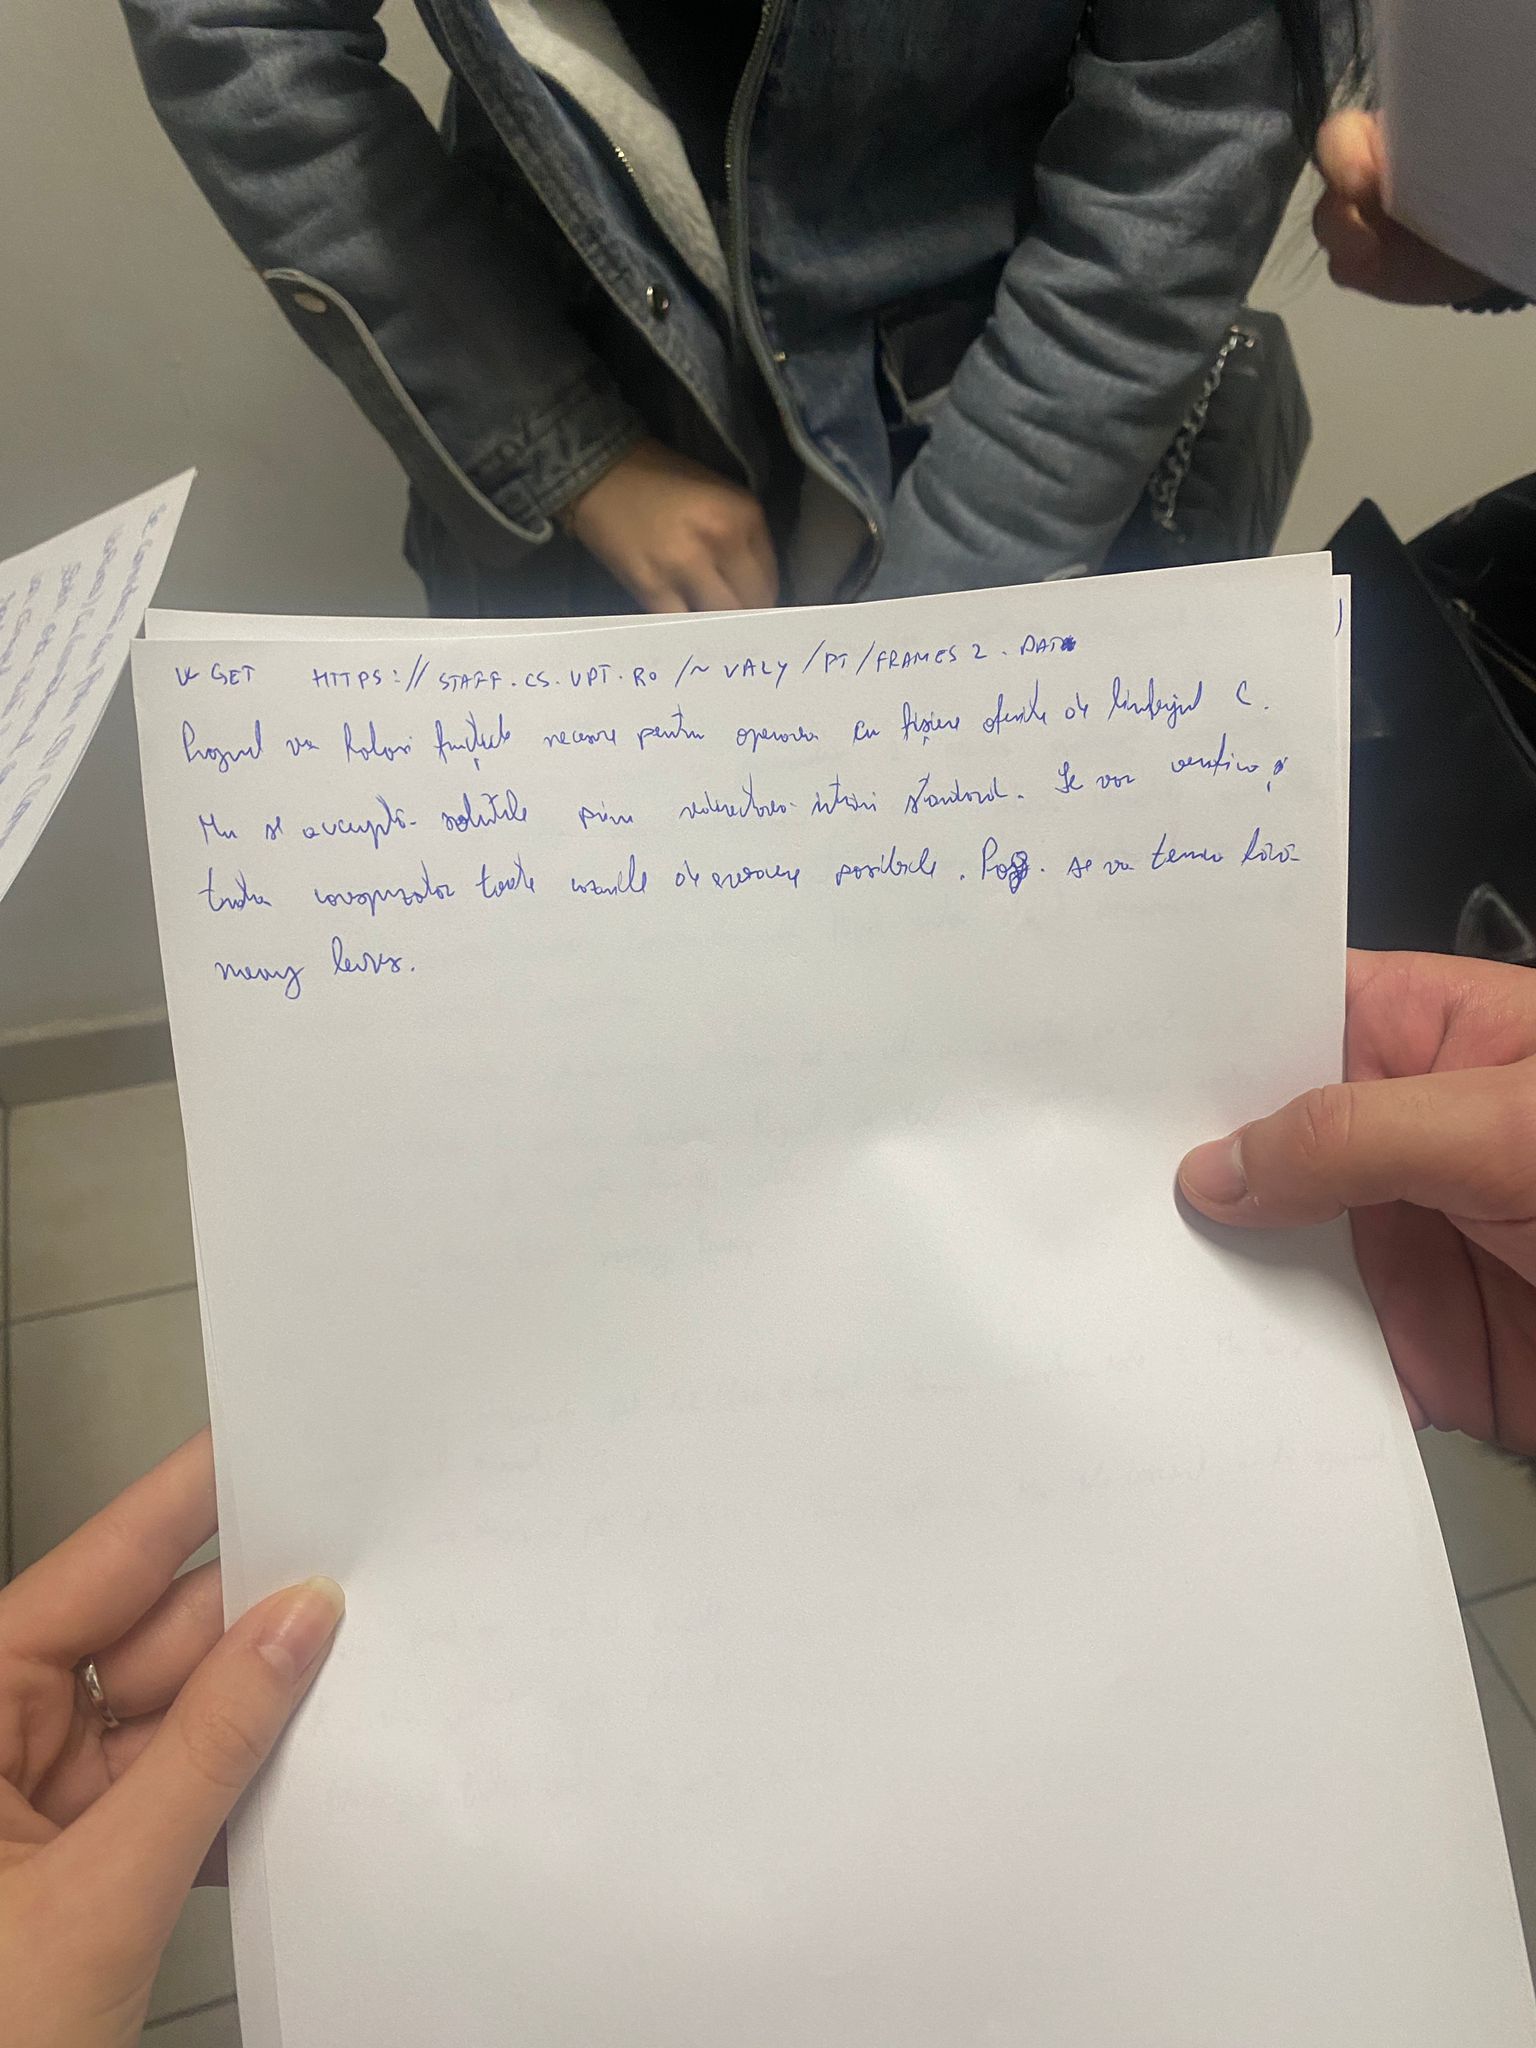 WGET HTTPS://STAFF.CS.UPT.RO/~VALY/PT/FRAMES2.DAT
Progrmul va folosi funcțiile necesare pentru operarea cu fișiere oferite de limbajul C.
Nu se acceptă soluțiile prin redirectarea intrării standard. Se vor verifica și
trata corespunzător toate cazurile de eroare posibile. Prog. se va termina fără
memory leaks.